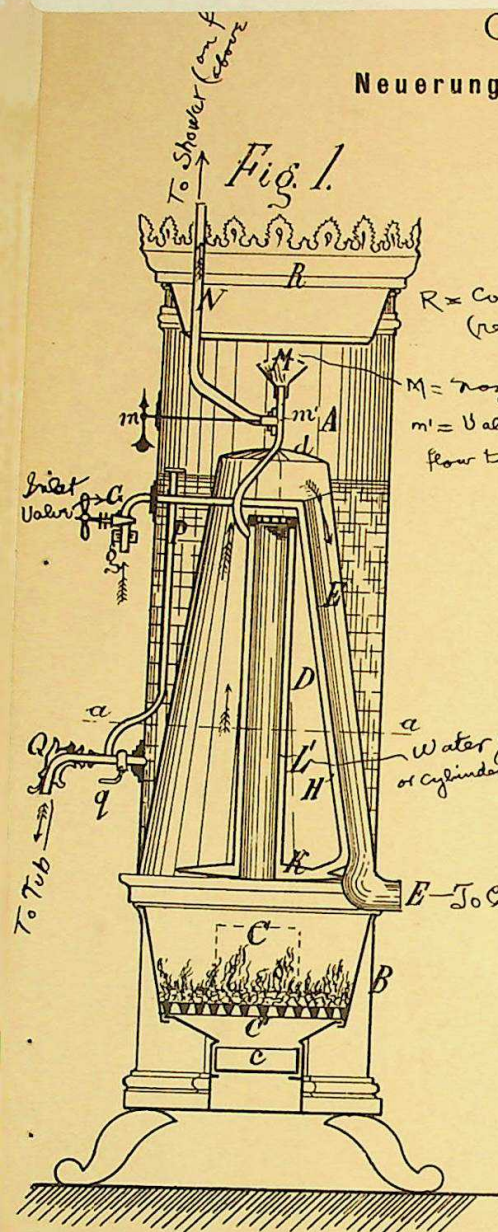 Neuerung
To Shower (on f
above
Fig. 1.
N
R
R = Co
(re
M
M = noz
m
m'
A
m' = Val
flow t
d
Inlet
Valve
G
g
p
E
D
a
a
L
H
Water
or cylinde
Q
q
To Tub
K
E - To C
C
B
C'
c